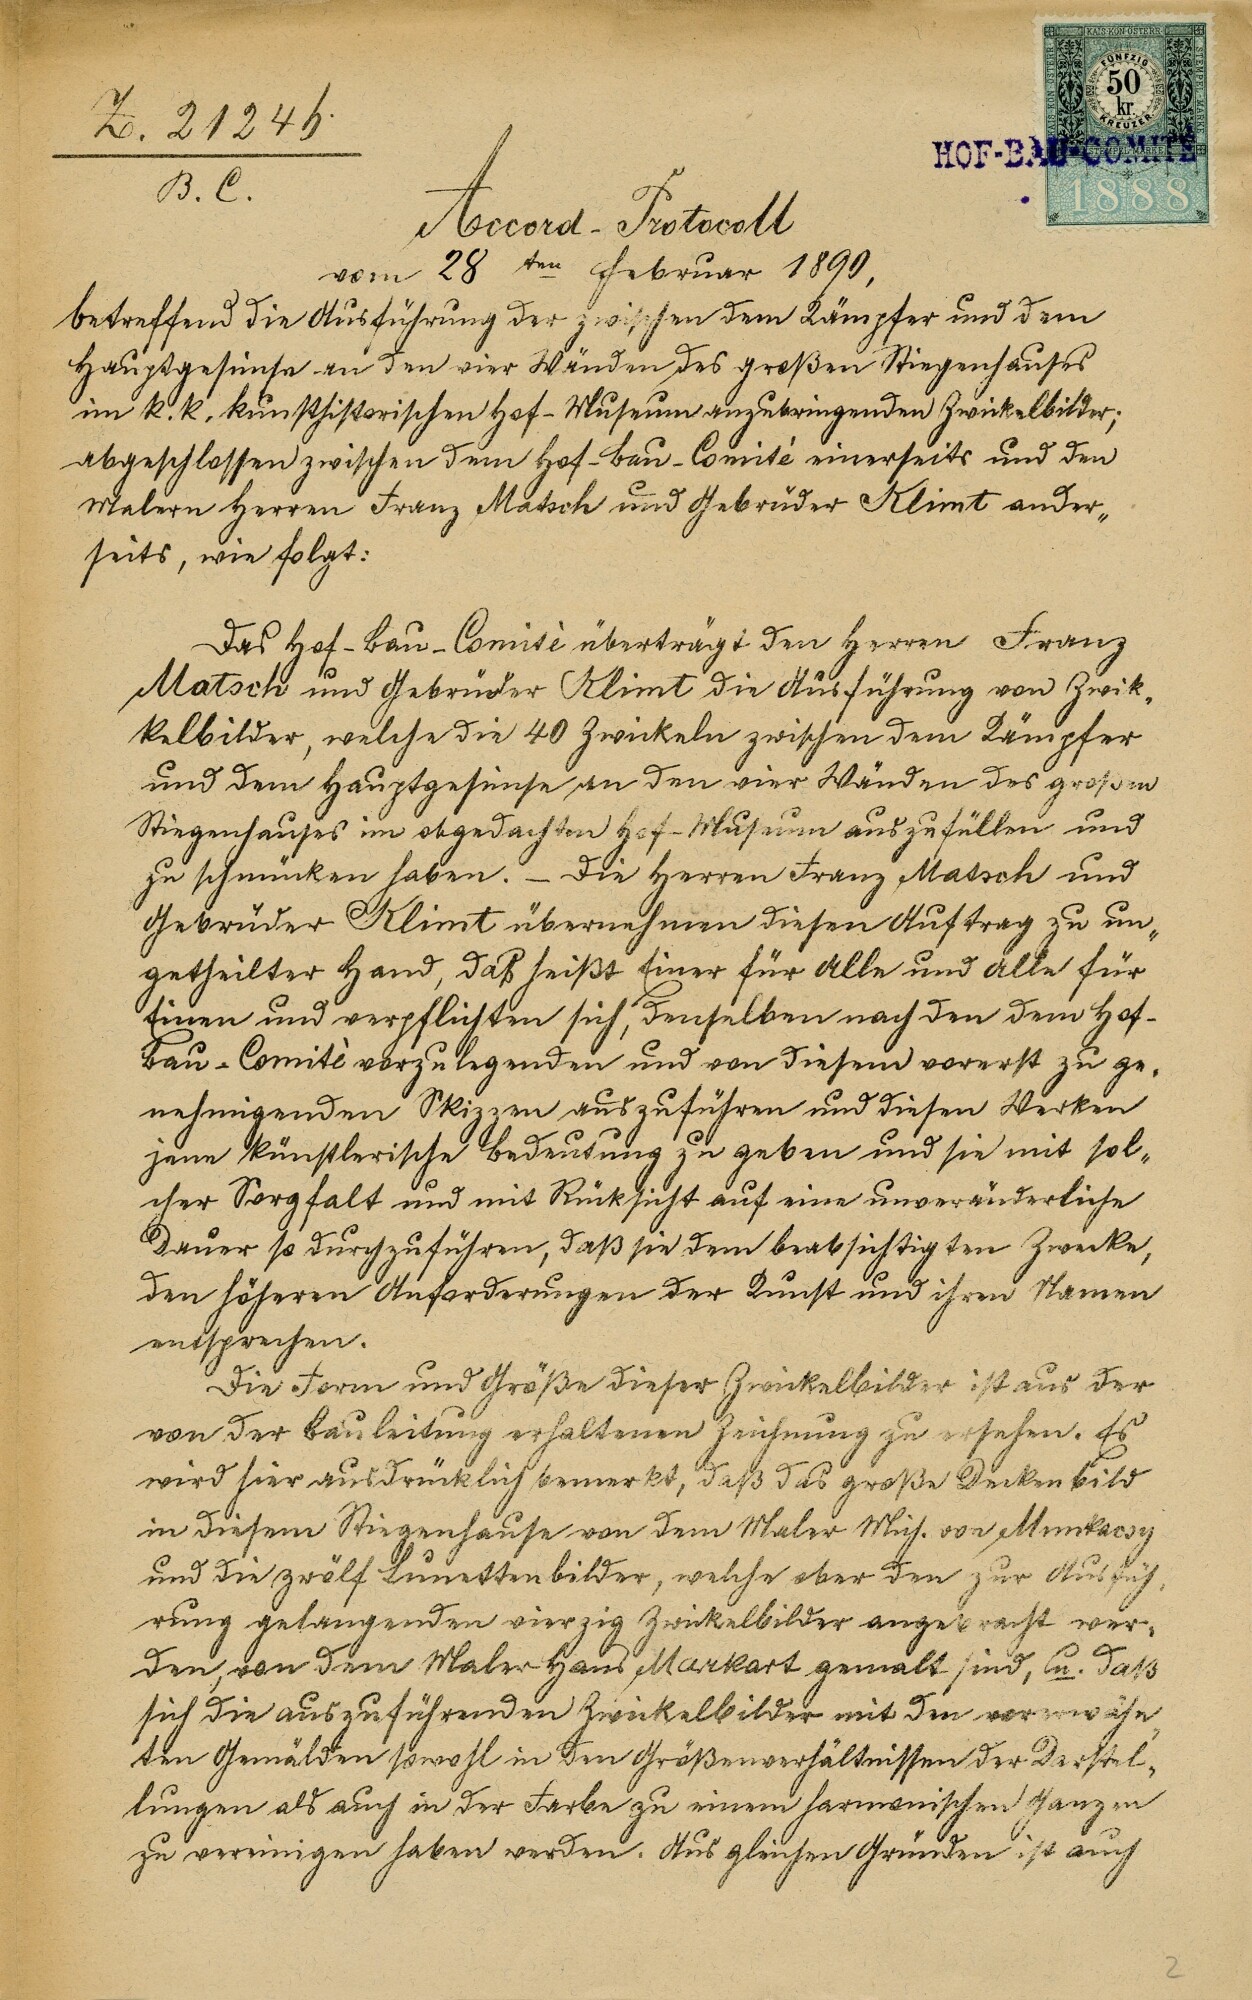 KAIS·KÖN·ÖSTERR·
FÜNFZIG
50
kr.
KREUZER
STEMPEL-MARKE
1888
HOF-BAU-COMITÉ
Z. 21245
B. C.
Accord-Protocoll
vom 28 ten Februar 1890,
betreffend die Ausführung der zwischen dem Kämpfer und dem
Hauptgesimse an den vier Wänden des großen Stiegenhauses
im k. k. kunsthistorischen Hof-Museum anzubringenden Zwickelbilder;
abgeschlossen zwischen dem Hof-Bau-Comitè einerseits und den
Malern Herren Franz Matsch und Gebrüder Klimt ander„
seits, wie folgt:
Das Hof-Bau-Comitè überträgt den Herren Franz
Matsch und Gebrüder Klimt die Ausführung von Zwik-
kelbilder, welche die 40 Zwickeln zwischen dem Kämpfer
und dem Hauptgesimse an den vier Wänden des großen
Stiegenhauses im obgedachten Hof-Museum auszufüllen und
zu schmücken haben. – Die Herren Franz Matsch und
Gebrüder Klimt übernehmen diesen Auftrag zu un„
getheilter Hand, das heißt Einer für Alle und Alle für
Einen und verpflichten sich, denselben nach den dem Hof-
Bau-Comitè vorzulegenden und von diesem vorerst zu ge-
nehmigenden Skizzen auszuführen und diesen Werken
jene künstlerische Bedeutung zu geben und sie mit sol„
cher Sorgfalt und mit Rücksicht auf eine unveränderliche
Dauer so durchzuführen, daß sie dem beabsichtigten Zwecke,
den höheren Anforderungen der Kunst und ihren Namen
entsprechen.
Die Form und Größe dieser Zwickelbilder ist aus der
von der Bauleitung erhaltenen Zeichnung zu ersehen. Es
wird hier ausdrücklich bemerkt, daß das große Deckenbild
in diesem Stiegenhause von dem Maler Mich. von Munkacsy
und die zwölf Lunettenbilder, welche ober den zur Ausfüh-
rung gelangenden vierzig Zwickelbilder angebracht wer-
den, von dem Maler Hans Markart gemalt sind, u. daß
sich die auszuführenden Zwickelbilder mit den vorerwähn„
ten Gemälden sowohl in den Größenverhältnissen der Darstel„
lungen als auch in der Farbe zu einem harmonischen Ganzen
zu vereinigen haben werden. Aus gleichen Gründen ist auch
2